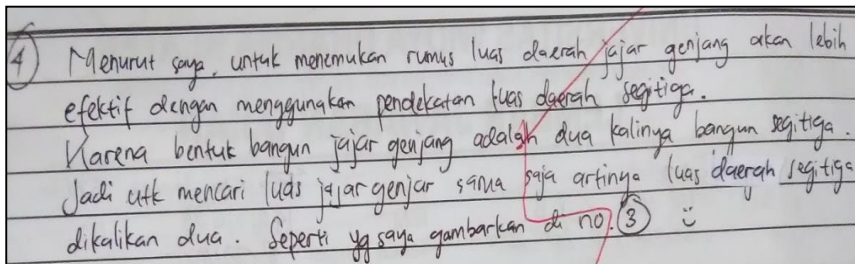 4 Menurut saya, untuk menemukan rumus luas daerah jajar genjang akan lebih
efektif dengan menggunakan pendekatan luas daerah segitiga.
Karena bentuk bangun jajar genjang adalah dua kalinya bangun segitiga.
Jadi utk mencari luas jajar genjar sama saja artinya luas daerah segitiga
dikalikan dua. Seperti yg saya gambarkan di no. 3 :)